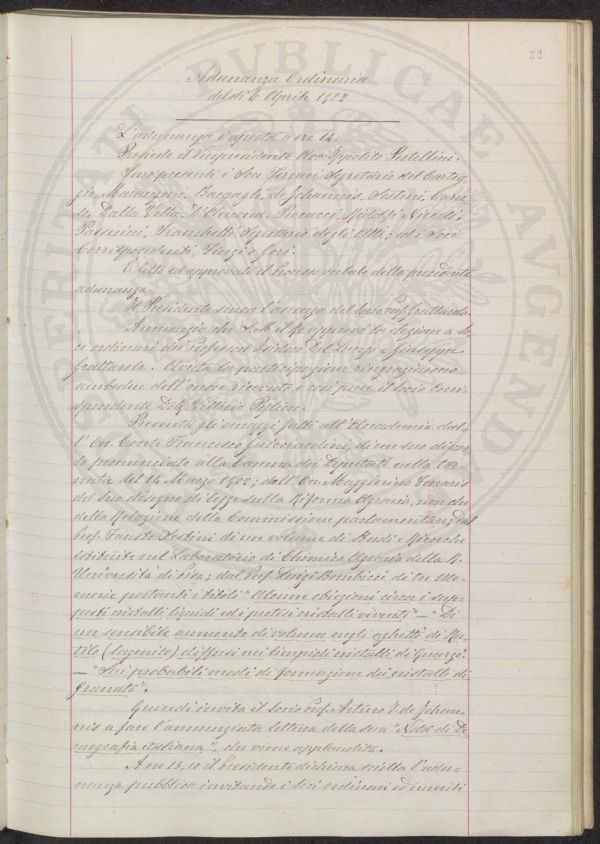 33
Adunanza Ordinaria
del dì 6 Aprile 1902
L'adunanza è aperta a ore 14.
Presiede il Vicepresidente Avv. Ippolito Pestellini.
Sono presenti i Soci Ferrari Segretario del Carteg-
gio, Marangoni, Bargagli, de Johannis, Sestini, Caru-
so, Dalla Volta, D'Ancona, Pucci, Niccoli,
Passerini, Franchetti Segretario degli Atti; ed i Soci
Corrispondenti, e Gori.
È letto ed approvato il Processo verbale della precedente
adunanza.
Il Presidente scusa l'assenza del Socio Prof. Grattarola.
Annunzia che S. M. il Re approvò la elezione a So-
ci ordinari dei Professori Isidoro Del Lungo e Giuseppe
Grattarola. Avuta la partecipazione ringraziarono
ambedue dell'onore ricevuto e così pure il Socio Corri-
spondente Dott. Vittorio Peglion.
Presenta gli omaggi fatti all'Accademia dal-
l'On. Conte Francesco Guicciardini, di un suo discor-
so pronunciato alla Camera dei Deputati nella tor-
nata del 14 Marzo 1902; dall'On. Maggiorino Ferraris
del suo disegno di legge sulla Riforma Agraria, non che
della Relazione della Commissione parlamentare; dal
Prof. Fausto Sestini di un volume di Studi e Ricerche
istituite nel Laboratorio di Chimica Agraria della R.
Università di Pisa; dal Prof. Luigi Bombicci di tre Me-
morie portanti i titoli "Alcune obiezioni circa i sup-
posti cristalli liquidi ed i pretesi cristalli viventi" — "Di
un sensibile aumento di volume negli aghetti di Ru-
tilo (Sagenite) diffusi nei limpidi cristalli di Quarzo".
— "Sui probabili modi di formazione dei cristalli di
Granato".
Quindi invita il Socio Prof. Arturo J. de Johan-
nis a fare l'annunziata lettura della sua "Nota di De-
mografia italiana", che viene applaudita.
A ore 15,10 il Presidente dichiara sciolta l'adu-
nanza pubblica invitando i Soci ordinari ed emeriti